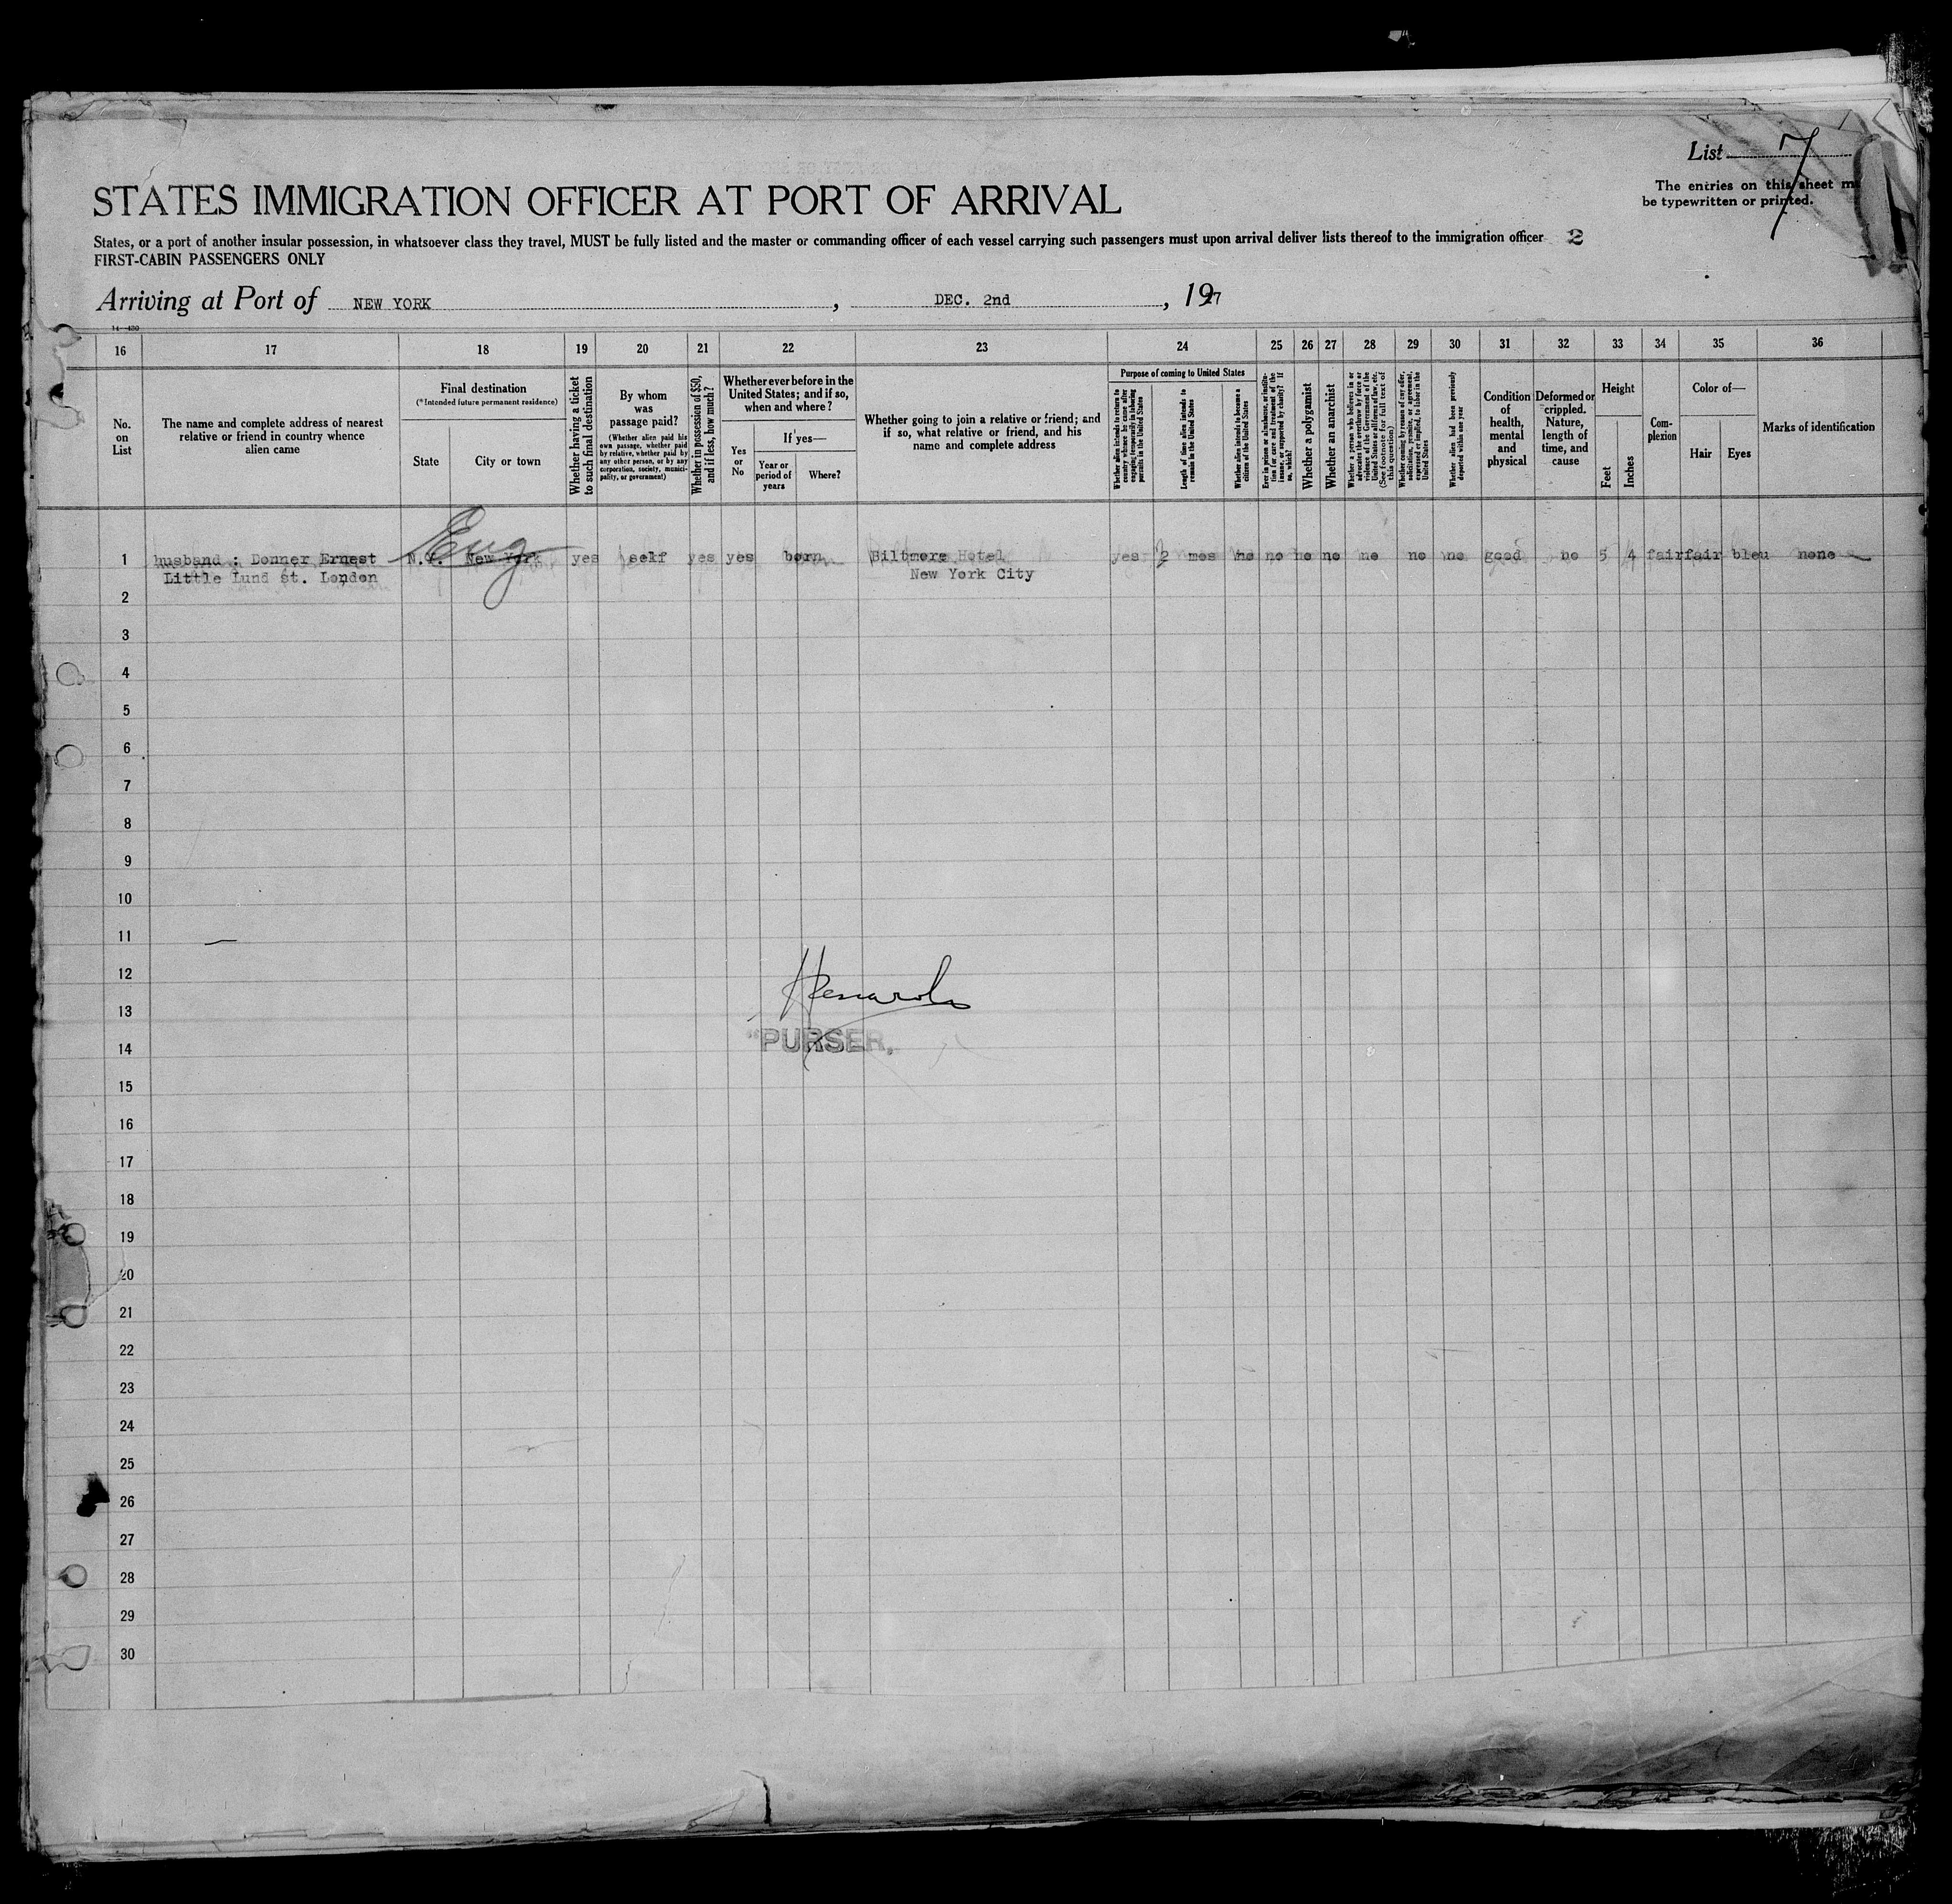 List 7
The entries on this sheet
be typewritten or printed.
STATES IMMIGRATION OFFICER AT PORT OF ARRIVAL
States, or a port of another insular possession, in whatsoever class they travel, MUST be fully listed and the master or commanding officer of each vessel carrying such passengers must upon arrival deliver lists thereof to the immigration officer 2
FIRST-CABIN PASSENGERS ONLY
Arriving at Port of NEW YORK, DEC. 2nd, 1927
14-430
16 17 18 19 20 21 22 23 24 25 26 27 28 29 30 31 32 33 34 35 36
No.
on
List
The name and complete address of nearest
relative or friend in country whence
alien came
Final destination
(*Intended future permanent residence)
State
City or town
Whether having a ticket
to such final destination
By whom
was
passage paid?
(Whether alien paid his
own passage, whether paid
by relative, whether paid by
any other person, or by any
corporation, society, munici-
pality, or government)
Whether in possession of $50,
and if less, how much?
Whether ever before in the
United States; and if so,
when and where?
Yes
or
No
If yes—
Year or
period of
years
Where?
Whether going to join a relative or friend; and
if so, what relative or friend, and his
name and complete address
Purpose of coming to United States
Whether alien intends to return to
country whence he came after
engaging temporarily in laboring
pursuits in the United States
Length of time alien intends to
remain in the United States
Whether alien intends to become a
citizen of the United States
Ever in prison or almshouse, or institu-
tion for care and treatment of the
insane, or supported by charity? If
so, which?
Whether a polygamist
Whether an anarchist
Whether a person who believes in or
advocates the overthrow by force or
violence of the Government of the
United States or all forms of law, etc.
(See footnote for full text of
this question)
Whether coming by reason of any offer,
solicitation, promise, or agreement,
expressed or implied, to labor in the
United States
Whether alien had been previously
deported within one year
Condition
of
health,
mental
and
physical
Deformed or
crippled.
Nature,
length of
time, and
cause
Height
Feet
Inches
Com-
plexion
Color of—
Hair
Eyes
Marks of identification
Eng
1 husband : Donner Ernest N.Y. New York yes self yes yes born Biltmore Hotel yes 2 mos no no no no no no no good no 5 4 fair fair bleu none
Little Lund st. London New York City
2
3
4
5
6
7
8
9
10
11
12
13
"PURSER,
14
15
16
17
18
19
20
21
22
23
24
25
26
27
28
29
30